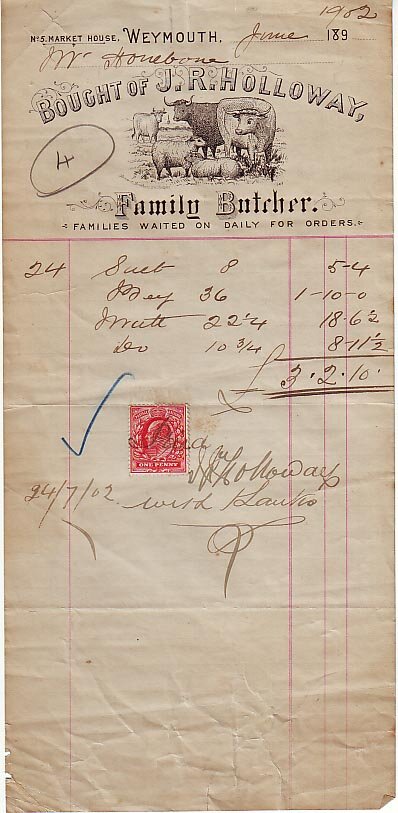 1902
No 5. MARKET HOUSE, WEYMOUTH, June 189
Mr Honebone
BOUGHT OF J. R. HOLLOWAY,
4
Family Butcher.
FAMILIES WAITED ON DAILY FOR ORDERS.
24 Suet 8 5-4
36 1-10-0
Mutt 22 1/4 18.6 1/2
Do 10 3/4 8-11 1/2
£ 3.2.10.
Paid
ONE PENNY
JR Holloway
24/7/02 with Thanks